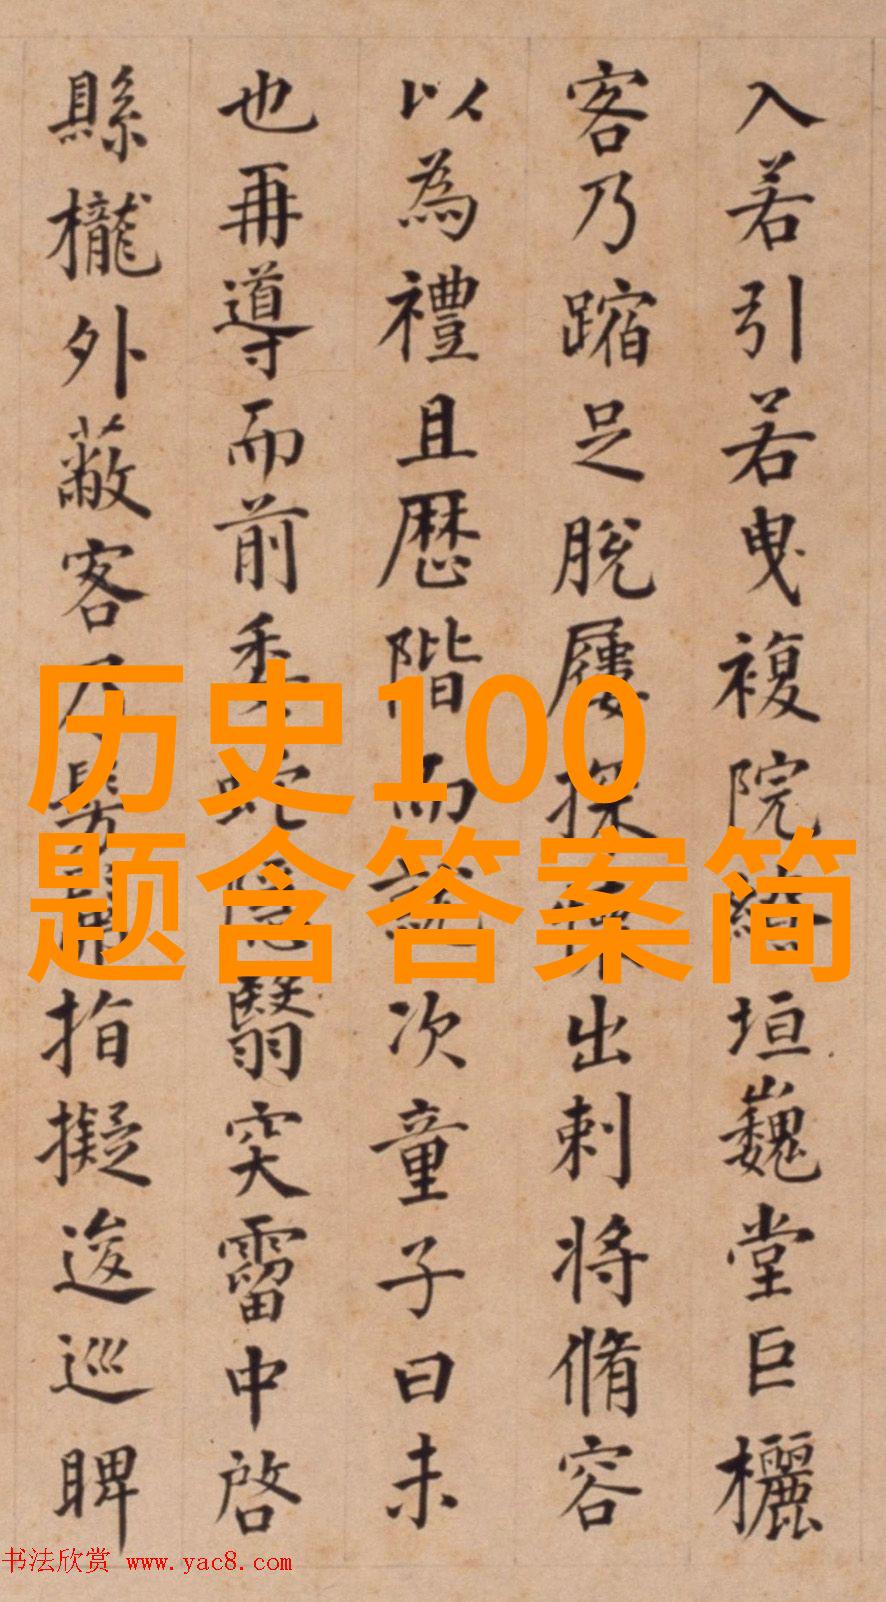 入若引若曳複院繚垣巍堂巨欐
客乃蹜足脫屨探懷出刺將脩容
以為禮且歴階而就次童子曰未
也再導而前委蛇隱翳穾霤中啓
縣櫳外蔽客乃髣髴指擬逡巡睥
历史100
题含答案简
书法欣赏 www.yac8.com